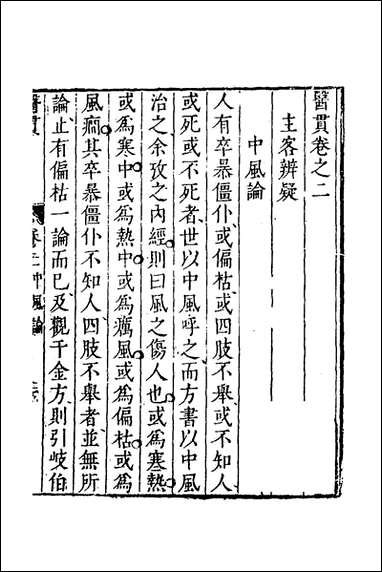 醫貫卷之二
主客辨疑
中風論
人有卒暴僵仆或偏枯或四肢不舉或不知人
或死或不死者世以中風呼之而方書以中風
治之余攷之內經則曰風之傷人也或為寒熱
或為寒中或為熱中或為癘風或為偏枯或為
風痱其卒暴僵仆不知人四肢不舉者並無所
論止有偏枯一論而已及觀千金方則引岐伯
醫貫
卷二中風論